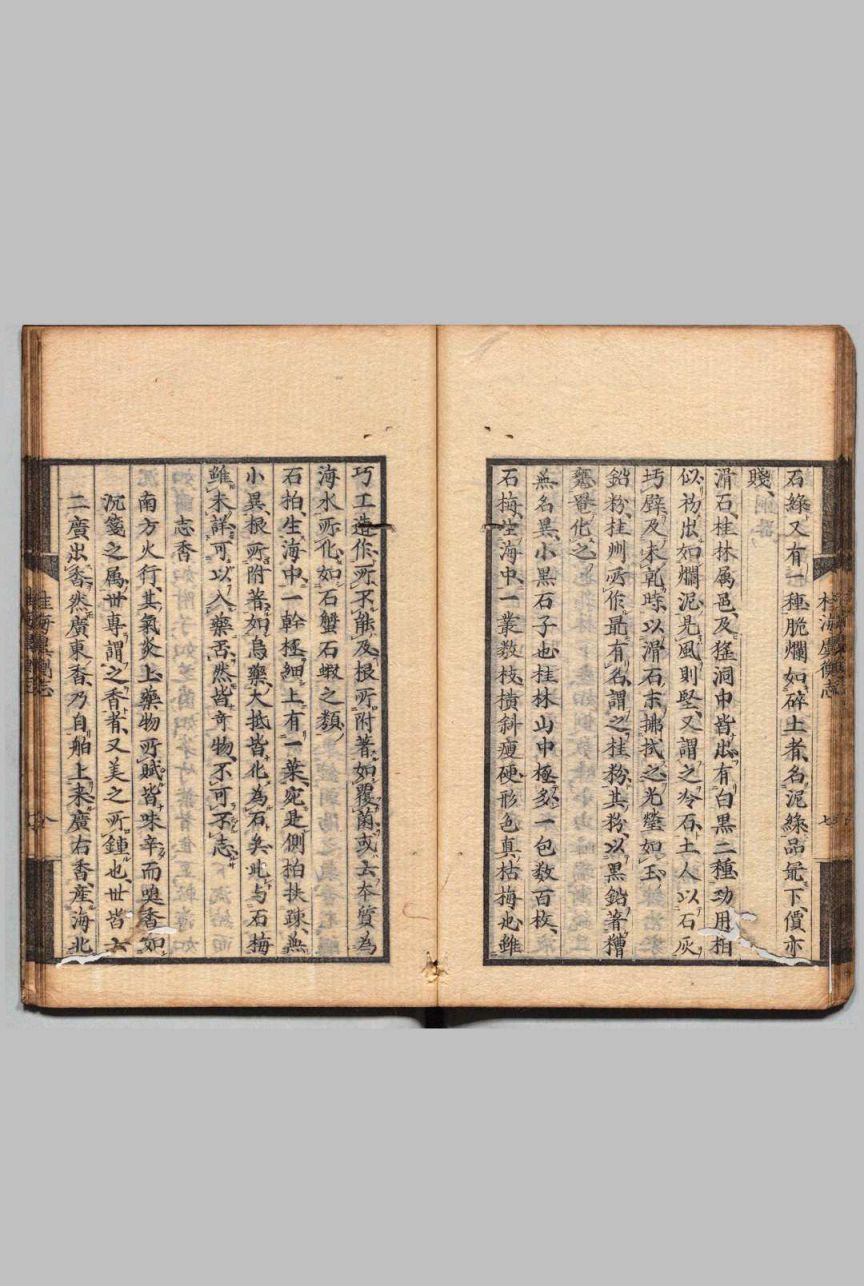 石緑又有一種脆爛如碎土者名泥緑品最下價亦
賤
滑石桂林属邑及猺洞中皆出有白黒二種功用相
似初出如爛泥見風則堅又謂之冷石土人以石灰
圬壁及未乾時以滑石末拂拭之光瑩如玉
鉛粉桂州所作最有名謂之桂粉其粉以黒鉛著糟
甕罨化之
無名異小黒石子也桂林山中極多一包数百枚
石梅生海中一叢数枝横斜瘦硬形色真枯梅也雖
巧工造作所不能及根所附著如覆菌或云本質為
海水所化如石蟹石蝦之類
石柏生海中一幹極細上有一葉宛是側柏扶疎無
小異根所附著如烏藥大抵皆化為石矣此与石梅
雖未詳可以入藥否然皆奇物不可不志
志香
南方火行其氣炎上藥物所賦皆味辛而嗅香如
沉箋之属世専謂之香者又美之所鍾也世皆云
二廣出香然廣東香乃自舶上来廣右香産海北
桂海虞衡志
七
桂海虞衡志
八